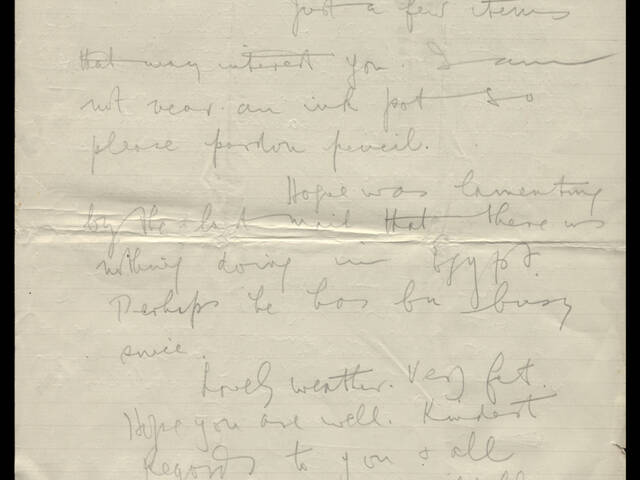 Just a few items
that may interest you. I am
not near an ink pot so
please pardon pencil.
Hogue was lamenting
by the last mail that there was
nothing doing in Egypt.
Perhaps he has bn busy
since.
Lovely weather. Very fat.
Hope you are well. Kindest
Regards to you & all